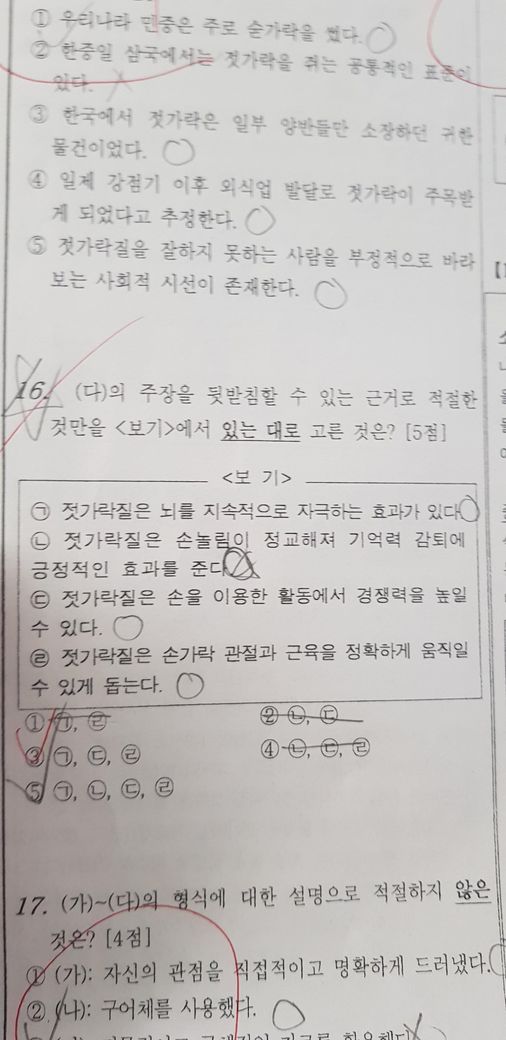 ① 우리나라 민중은 주로 숟가락을 썼다.
② 한중일 삼국에서는 젓가락을 쥐는 공통적인 표준이
있다.
③ 한국에서 젓가락은 일부 양반들만 소장하던 귀한
물건이었다.
④ 일제 강점기 이후 외식업 발달로 젓가락이 주목받
게 되었다고 추정한다.
⑤ 젓가락질을 잘하지 못하는 사람을 부정적으로 바라
보는 사회적 시선이 존재한다.
16. (다)의 주장을 뒷받침할 수 있는 근거로 적절한
것만을 <보기>에서 있는 대로 고른 것은? [5점]
<보 기>
㉠ 젓가락질은 뇌를 지속적으로 자극하는 효과가 있다
㉡ 젓가락질은 손놀림이 정교해져 기억력 감퇴에
긍정적인 효과를 준다
㉢ 젓가락질은 손을 이용한 활동에서 경쟁력을 높일
수 있다.
㉣ 젓가락질은 손가락 관절과 근육을 정확하게 움직일
수 있게 돕는다.
① ㉠, ㉣ ② ㉡, ㉢
③ ㉠, ㉢, ㉣ ④ ㉡, ㉢, ㉣
⑤ ㉠, ㉡, ㉢, ㉣
17. (가)~(다)의 형식에 대한 설명으로 적절하지 않은
것은? [4점]
① (가): 자신의 관점을 직접적이고 명확하게 드러냈다.
② (나): 구어체를 사용했다.